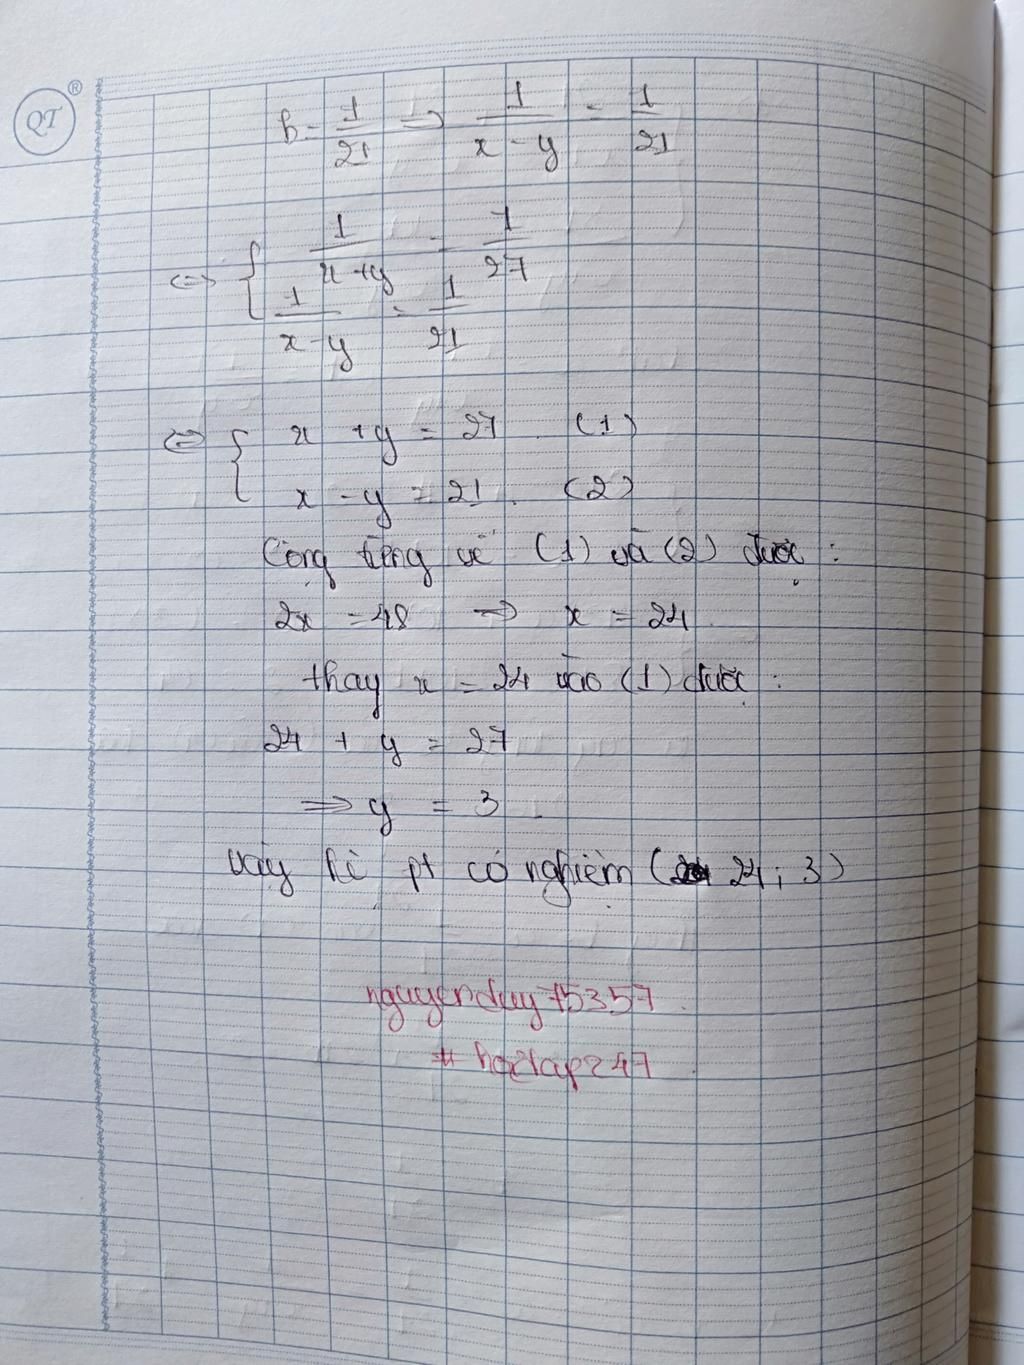 QT ®
b = 1/21 ⇒ 1/(x - y) = 1/21
⇔ { 1/(x + y) = 1/27
1/(x - y) = 1/21
⇔ { x + y = 27 (1)
x - y = 21 (2)
Cộng từng vế (1) và (2) được :
2x = 48 ⇒ x = 24
thay x = 24 vào (1) được :
24 + y = 27
⇒ y = 3
Vậy hệ pt có nghiệm ( 24 ; 3)
nguyenduy75357
# hoctap247